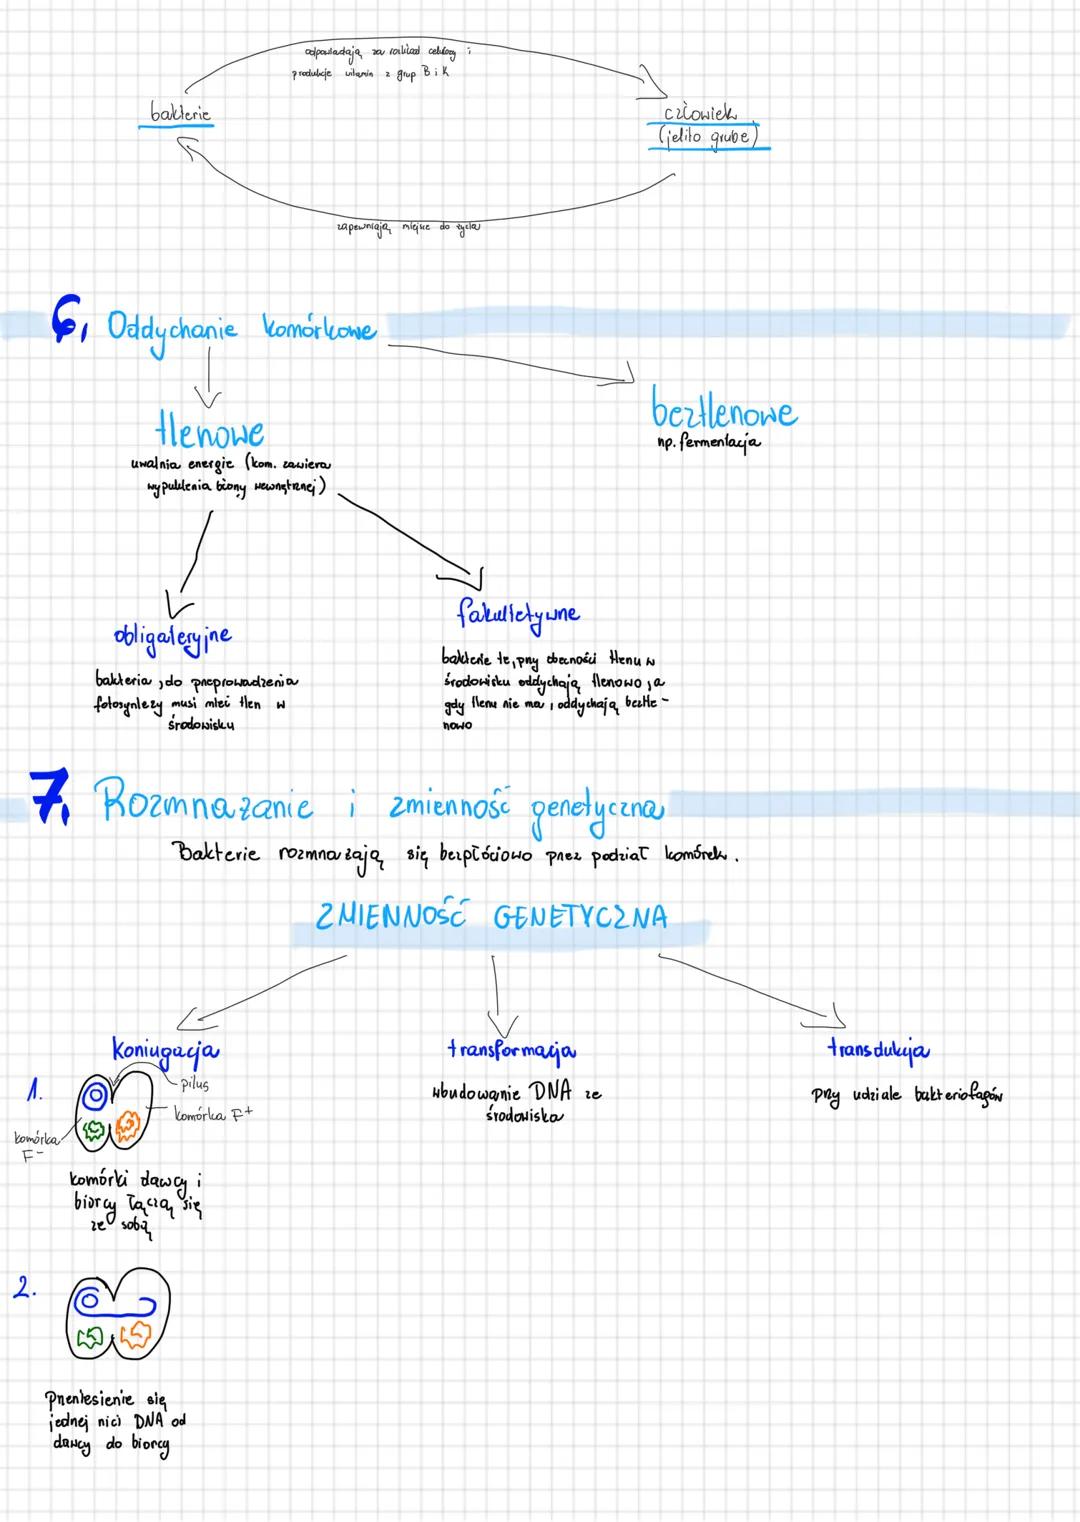 odpowiadają za rozkład celulozy i
produkcje witamin z grup B i K
bakterie
człowiek
(jelito grube)
zapewniają miejsce do życia
6. Oddychanie komórkowe
tlenowe
uwalnia energie (kom. zawiera
wypuklenia błony wewnętrznej)
beztlenowe
np. fermentacja
obligateryjne
bakteria, do przeprowadzenia
fotosyntezy musi mieć tlen w
środowisku
fakultetywne
bakterie te, przy obecności tlenu w
środowisku oddychają tlenowo, a
gdy tlenu nie ma, oddychają beztle-
nowo
7. Rozmnażanie i zmienność genetyczna
Bakterie rozmnażają się bezpłciowo przez podział komórek.
ZMIENNOŚĆ GENETYCZNA
koniugacja
1.
pilus
komórka F+
komórka
F-
komórki dawcy i
biorcy łączą się
ze sobą
2.
Przeniesienie się
jednej nici DNA od
dawcy do biorcy
transformacja
wbudowanie DNA ze
środowiska
transdukcja
przy udziale bakteriofagów